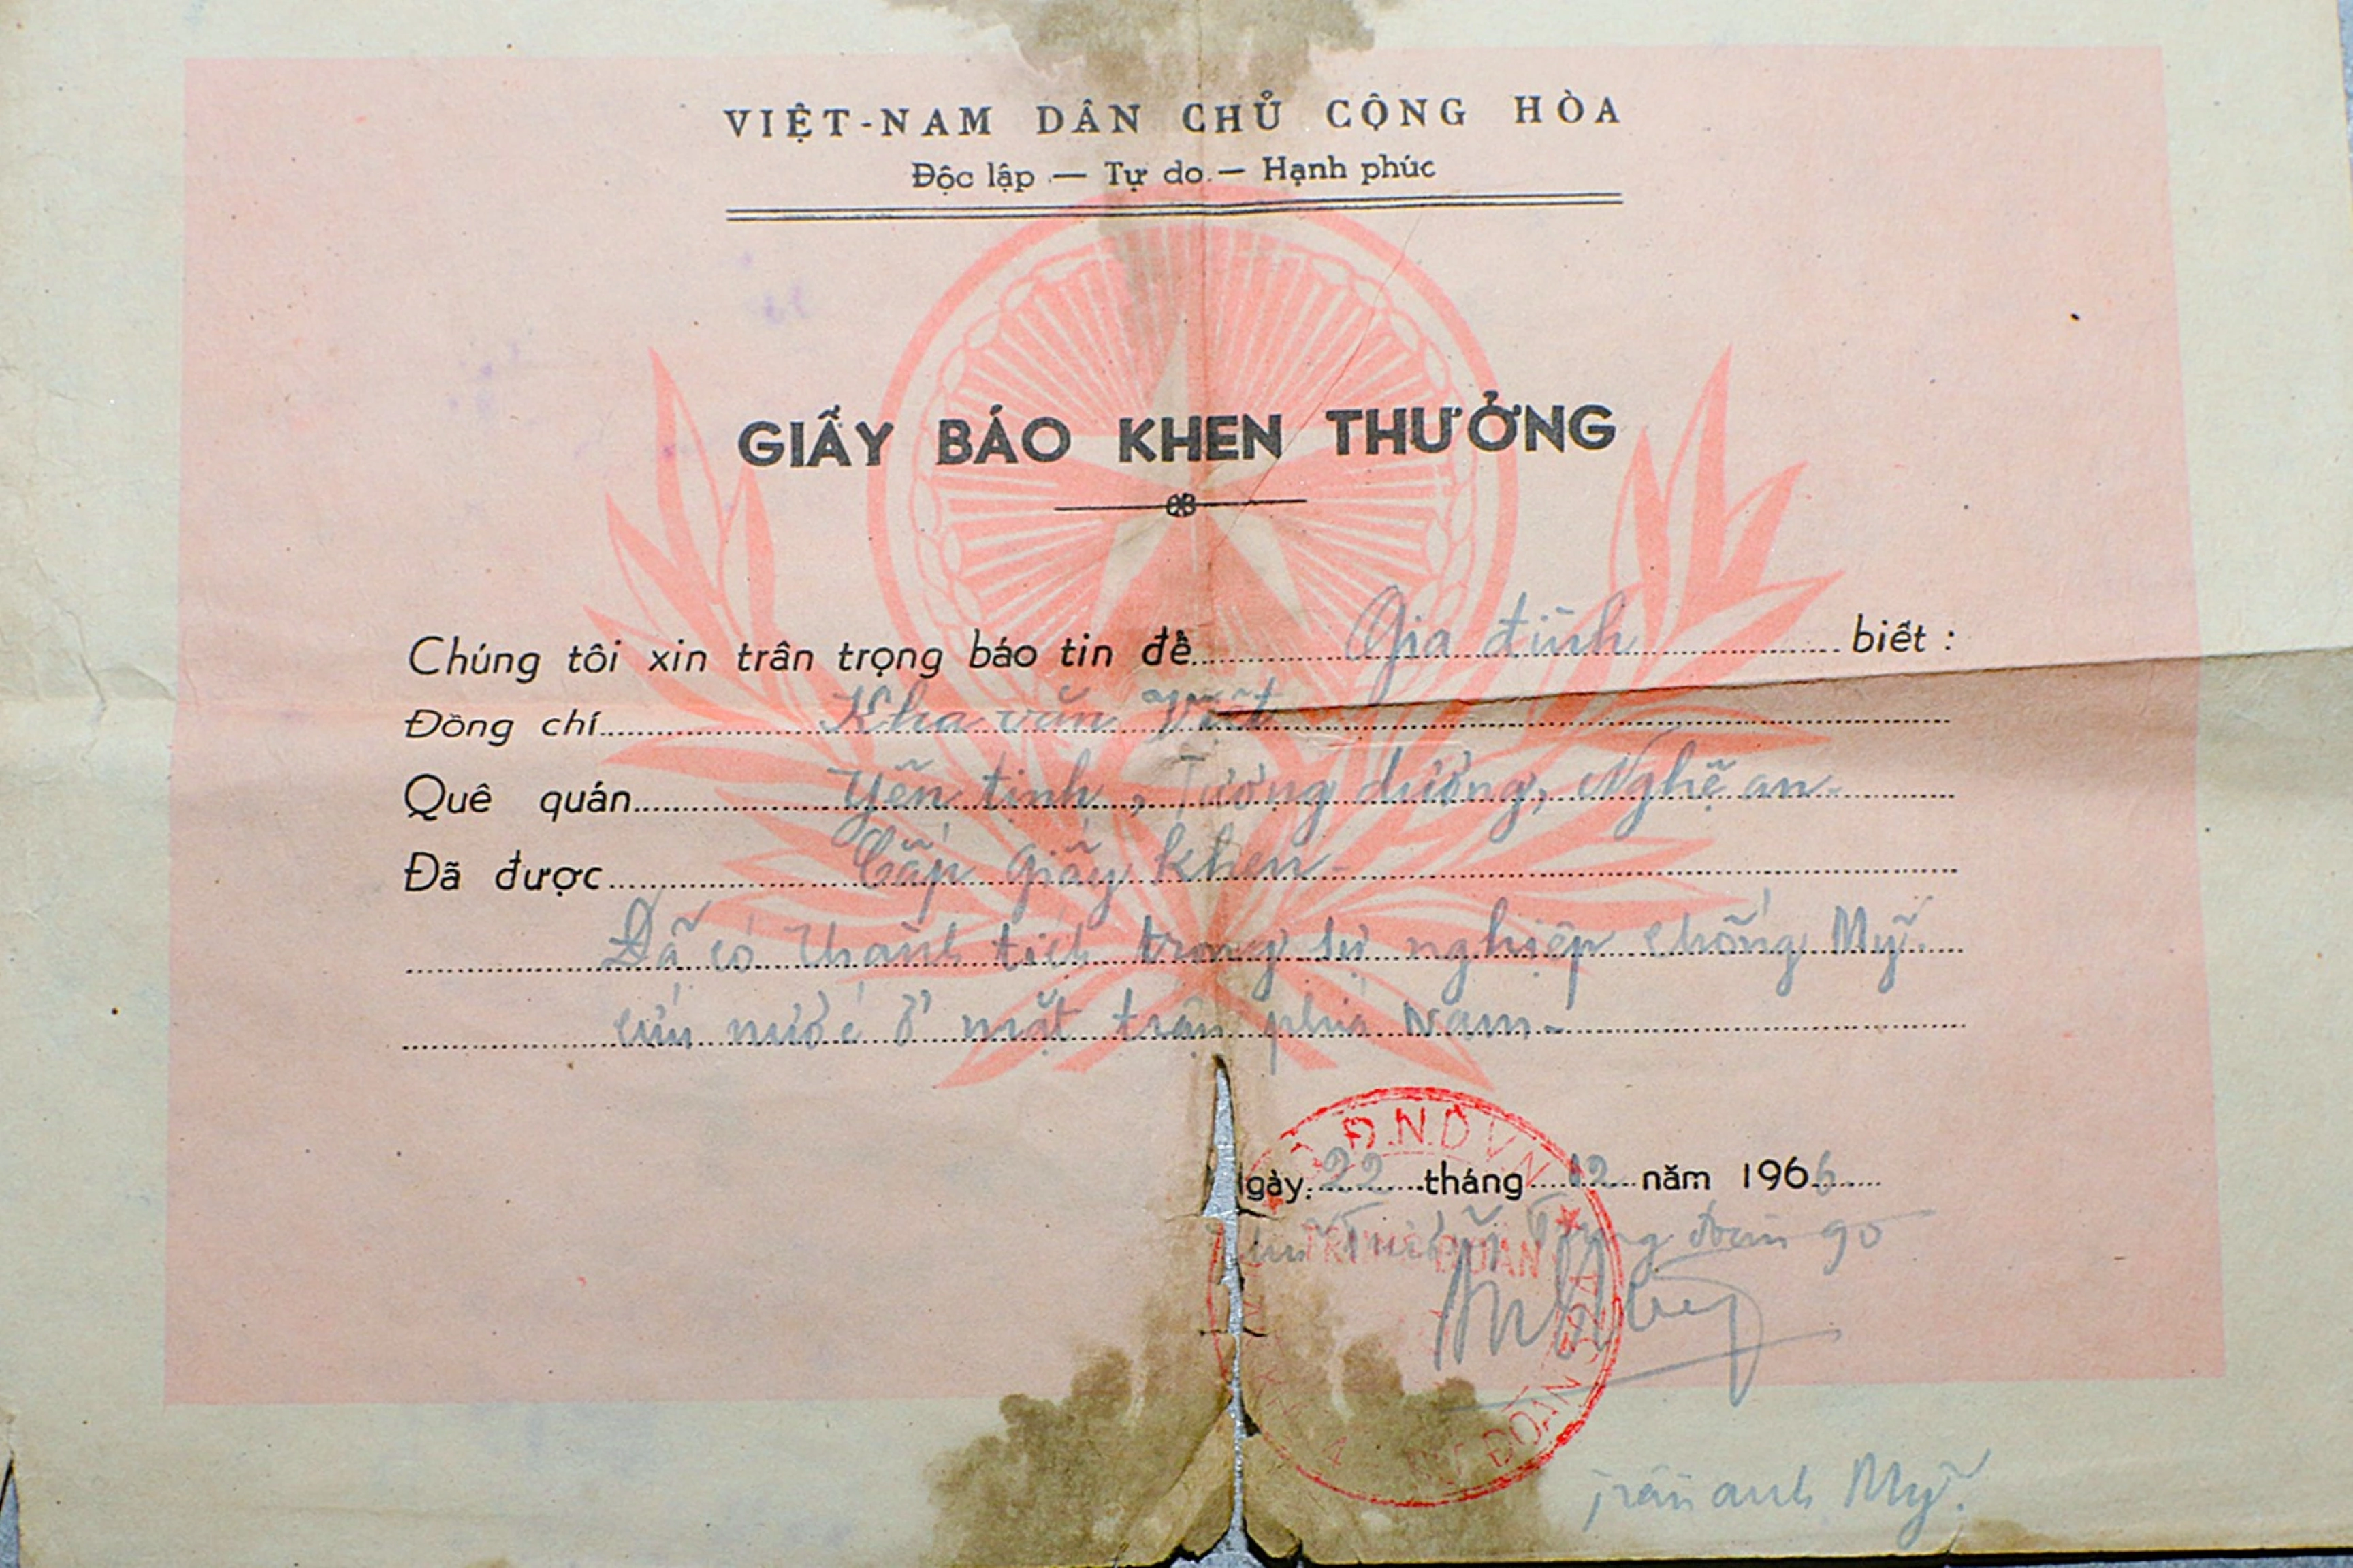 VIỆT-NAM DÂN CHỦ CỘNG HÒA
Độc lập — Tự do — Hạnh phúc
GIẤY BÁO KHEN THƯỞNG
Chúng tôi xin trân trọng báo tin để Gia đình biết :
Đồng chí Kha văn Việt
Quê quán Yên tịnh, Tương dương, Nghệ an-
Đã được Cấp giấy khen-
Đã có thành tích trong sự nghiệp chống Mỹ.
cứu nước ở mặt trận phía Nam-
gày 22 tháng 12 năm 1966
Trung đoàn 90
Q.Đ.N.D.V.N
TRUNG ĐOÀN
trần anh Mỹ.